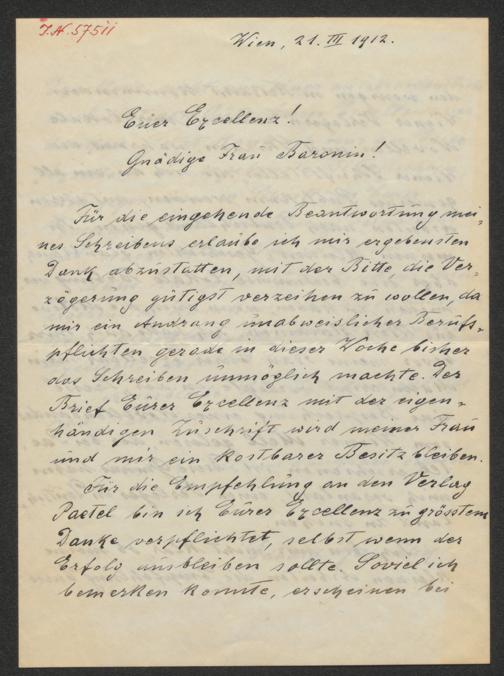 I.N. 57511
Wien, 21. III 1912.
Euer Excellenz!
Gnädige Frau Baronin!
Für die eingehende Beantwortung mei=
nes Schreibens erlaube ich mir ergebensten
Dank abzustatten, mit der Bitte, die Ver=
zögerung gütigst verzeihen zu wollen, da
mir ein Andrang unabweislicher Berufs=
pflichten gerade in dieser Woche bisher
das Schreiben unmöglich machte. Der
Brief Eurer Excellenz mit der eigen=
händigen Zuschrift wird meiner Frau
und mir ein kostbarer Besitz bleiben.
Für die Empfehlung an den Verlag
Paetel bin ich Eurer Excellenz zu grösstem
Danke verpflichtet, selbst wenn der
Erfolg ausbleiben sollte. Soviel ich
bemerken konnte, erscheinen bei